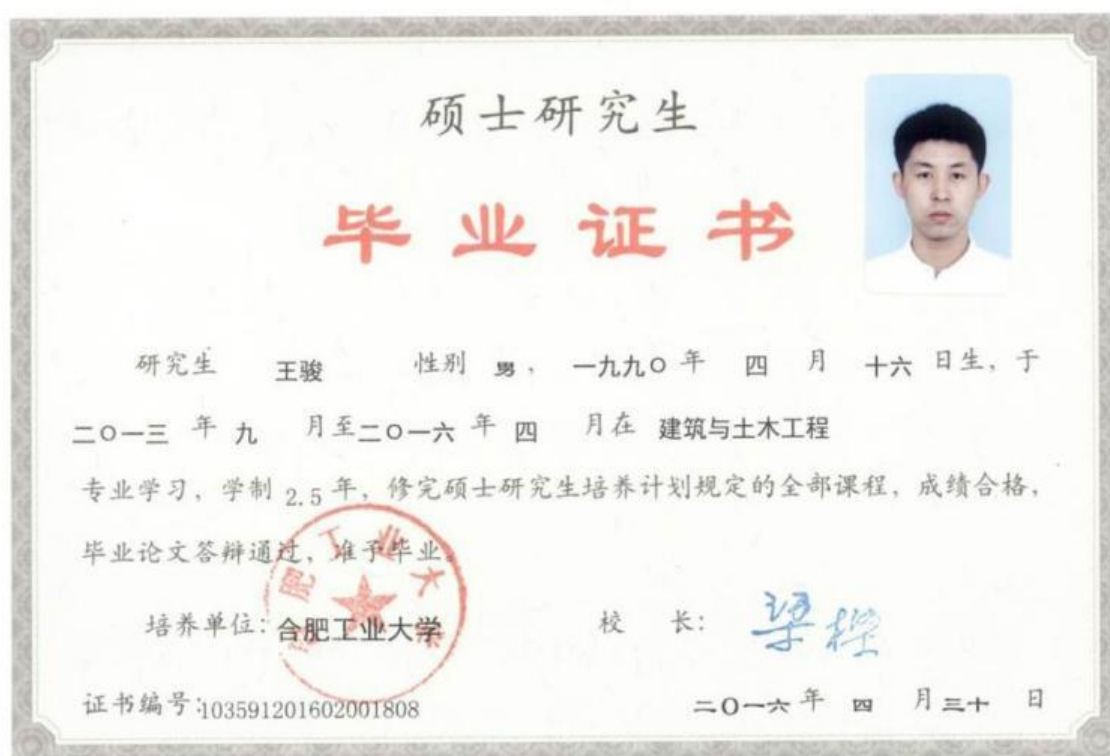 硕士研究生
毕业证书
研究生 王骏 性别 男, 一九九〇 年 四 月 十六 日生, 于
二〇一三 年 九 月至 二〇一六 年 四 月在 建筑与土木工程
专业学习, 学制 2.5 年, 修完硕士研究生培养计划规定的全部课程, 成绩合格,
毕业论文答辩通过, 准予毕业。
合肥工业大学
培养单位: 合肥工业大学 校 长: 梁樑
证书编号: 103591201602001808 二〇一六 年 四 月 三十 日